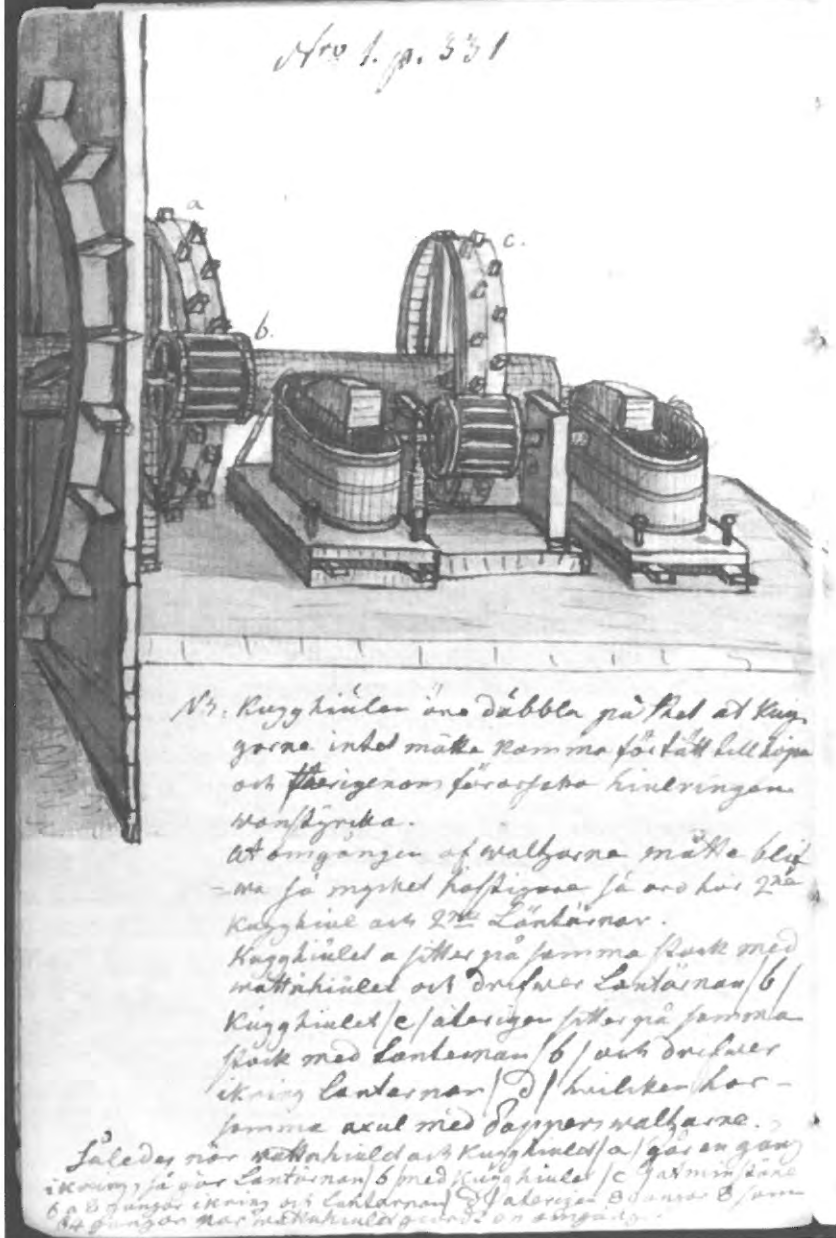 Nro 1. p. 331
a
c.
b.
N3: Kugghiulen äre dubbla på thet at Kug
garne intet måtte komma för tätt tillhopa
och therigenom förorsaka hiulringen
wanstyrka.
At omgången af waltzarne måtte blif
wa så mycket häftigare så äro här 2ne
Kugghiul och 2ne Lantärnor.
Kugghiulet a sitter på samma stock med
wattnhiulet och drifwer Lantärnan /b/
Kugghiulet /c/ återigen sitter på samma
stock med Lanternan /b/ och drifwer
ikring Lantärnan /d/ hvilcken har
samma axul med Pappers waltzarne.
Således när wattnhiulet och Kugghiulet /a/ går en gång
ikring, så går Lantärnan /b/ med Kugghiulet /c/ åtminstone
8 gångor ikring och Lantärnan /d/ återigen 8
64 gångor när wattnhiulet en omgång.